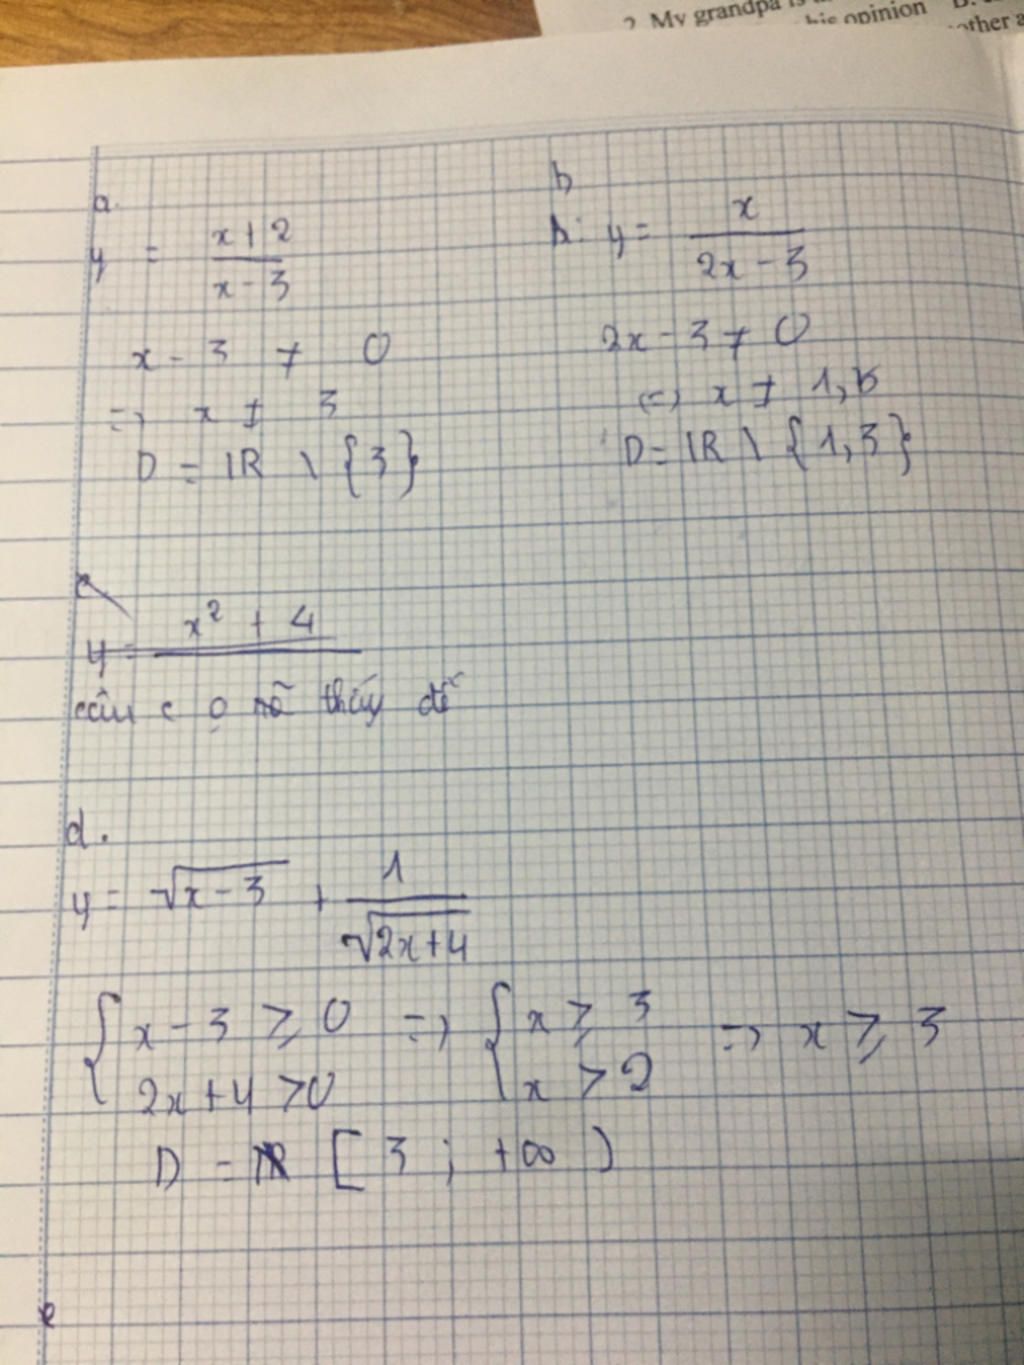 2. My grandpa is
his opinion
other a
a.
y = \frac{x+2}{x-3}
x - 3 ≠ 0
=> x ≠ 3
D = IR \ {3}
b
b: y = \frac{x}{2x-3}
2x - 3 ≠ 0
(=) x ≠ 1,5
D = IR \ {1,3}
c
y = \frac{x^2 + 4}{}
câu c o thấy đề
d.
y = \sqrt{x-3} + \frac{1}{\sqrt{2x+4}}
{ x - 3 ≥ 0 => { x ≥ 3 => x ≥ 3
2x + 4 > 0 x > 2
D = [3 ; +∞)
e